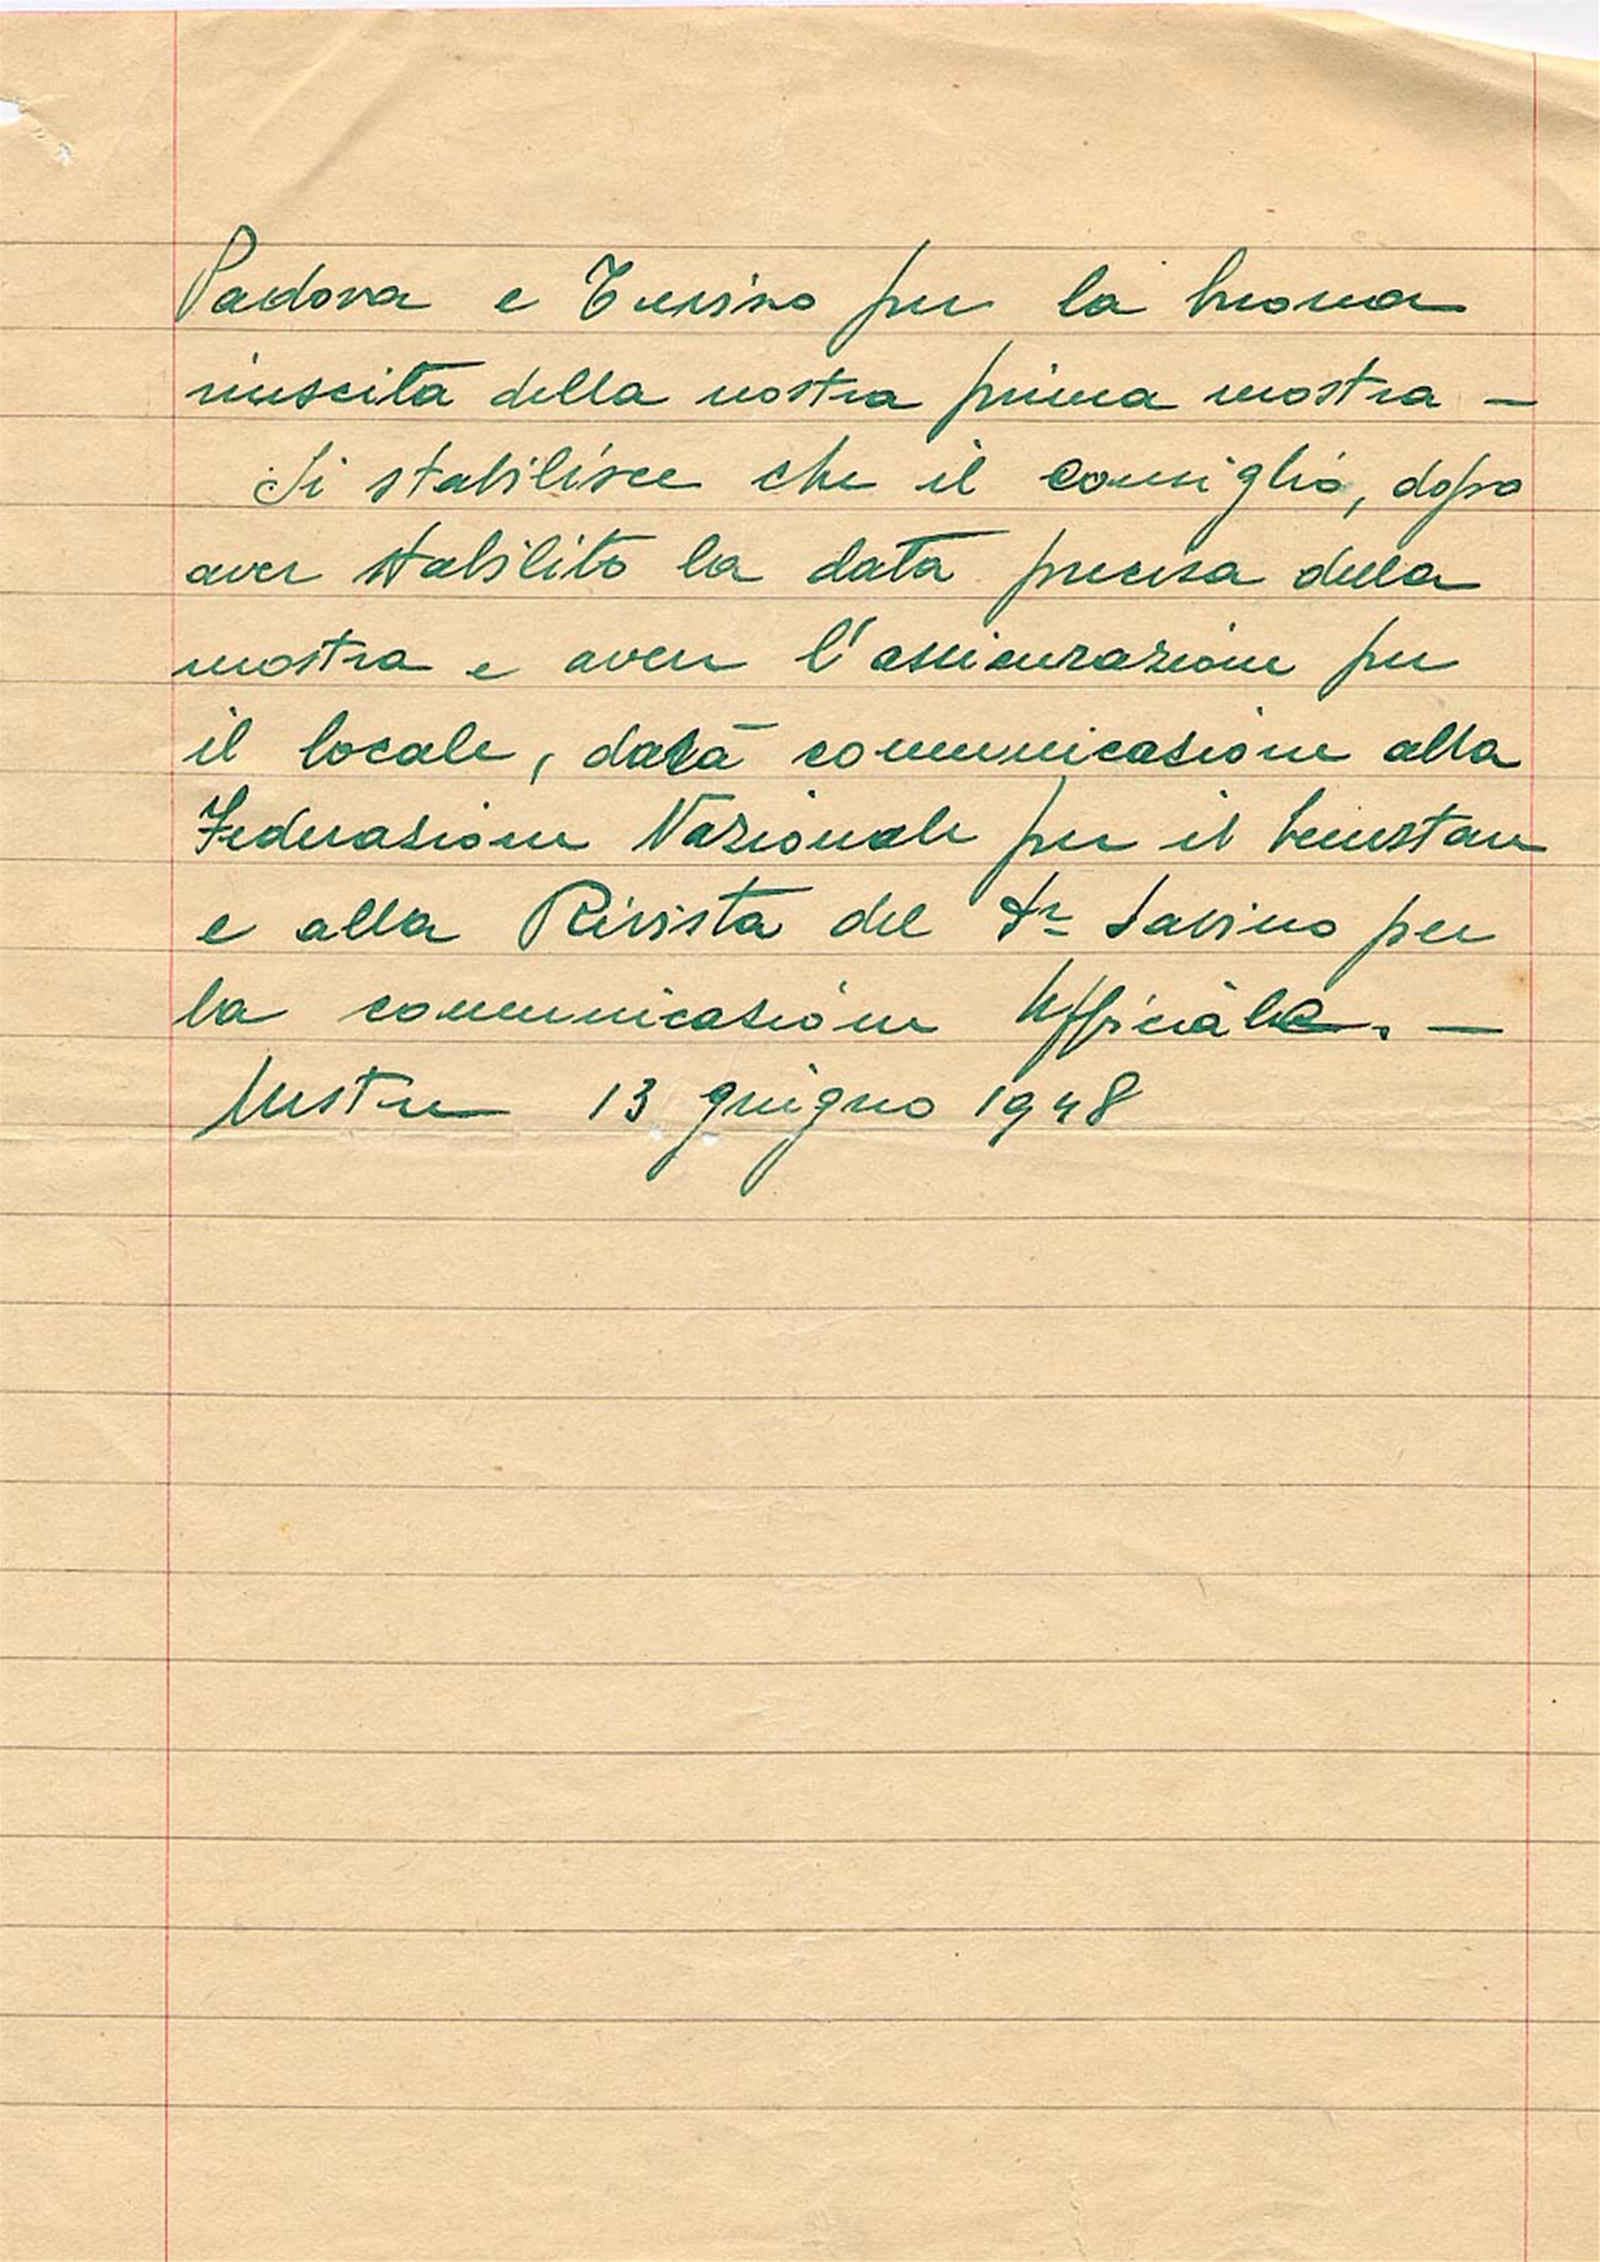 Padova e Treviso per la buona
riuscita della nostra prima mostra -
Si stabilisce che il consiglio, dopo
aver stabilito la data precisa della
mostra e avere l'assicurazione per
il locale, darà comunicazione alla
Federazione Nazionale per il benestare
e alla Rivista del Dr Savino per
la comunicazione Ufficiale. -
Mestre 13 giugno 1948